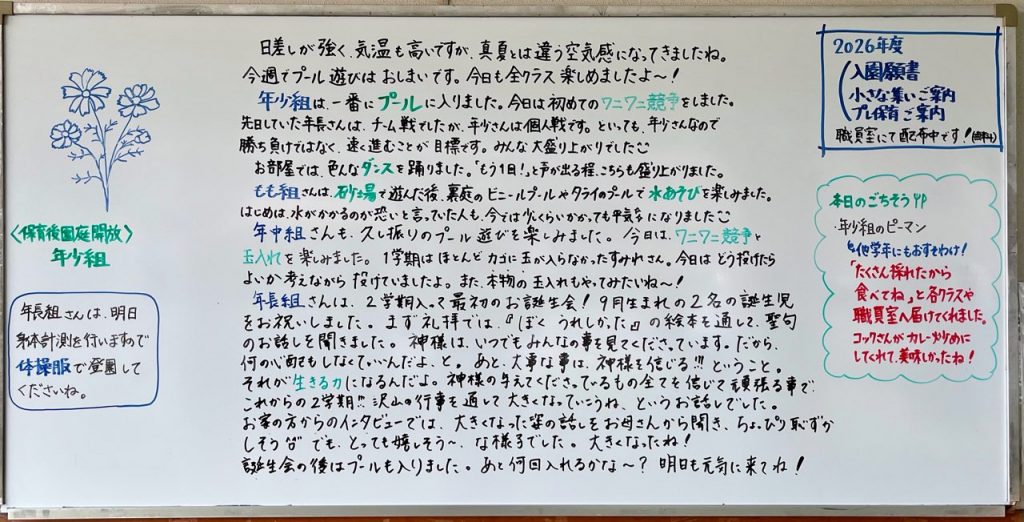 日差しが強く、気温も高いですが、真夏とは違う空気感になってきましたね。
今週でプール遊びはおしまいです。今日も全クラス楽しめましたよ〜！
年少組は、一番にプールに入りました。今日は初めてのワニワニ競争をしました。
先日していた年長さんは、チーム戦でしたが、年少さんは個人戦です。といっても、年少さんなので
勝ち負けではなく、速く進むことが目標です。みんな大盛り上がりでした
お部屋では、色んなダンスを踊りました。「もう1回！」と声が出る程、こちらも盛り上がりました。
もも組さんは、砂場で遊んだ後、裏庭のビニールプールやタライのプールで水あそびを楽しみました。
はじめは、水がかかるのが恐いと言っていた人も、今では少しくらいかかっても平気になりました
年中組さんも、久し振りのプール遊びを楽しみました。今日は、ワニワニ競争と
玉入れを楽しみました。1学期はほとんどカゴに玉が入らなかったすみれさん。今日はどう投げたら
よいか考えながら投げていましたよ。また、本物の玉入れもやってみたいね〜！
年長組さんは、2学期入って最初のお誕生会！9月生まれの2名の誕生児
をお祝いしました。まず礼拝では、『ぼくうれしかった』の絵本を通して、聖句
のお話しを聞きました。神様は、いつでもみんなの事を見てくださっています。だから、
何の心配もしなくていいんだよ、と。あと、大事な事は、神様を信じる!!! ということ。
それが生きる力になるんだよ。神様の与えてくださっているもの全てを信じて頑張る事で
これからの2学期!! 沢山の行事を通して大きくなっていこうね、というお話しでした。
お家の方からのインタビューでは、大きくなった姿の話しをお母さんから聞き、ちょっぴり恥ずか
しそう でも、とっても嬉しそう〜、な様子でした。大きくなったね！
誕生会の後はプールも入りました。あと何回入れるかな〜？ 明日も元気に来てね！
〈保育後園庭開放〉
年少組
年長組さんは、明日
身体計測を行いますので
体操服で登園して
くださいね。
2026年度
入園願書
小さな集いご案内
プレ保育ご案内
職員室にて配布中です！(無料)
本日のごちそう
・年少組のピーマン
他学年にもおすそわけ！
「たくさん採れたから
食べてね」と各クラスや
職員室へ届けてくれました。
コックさんがカレー炒めに
してくれて、美味しかったね！